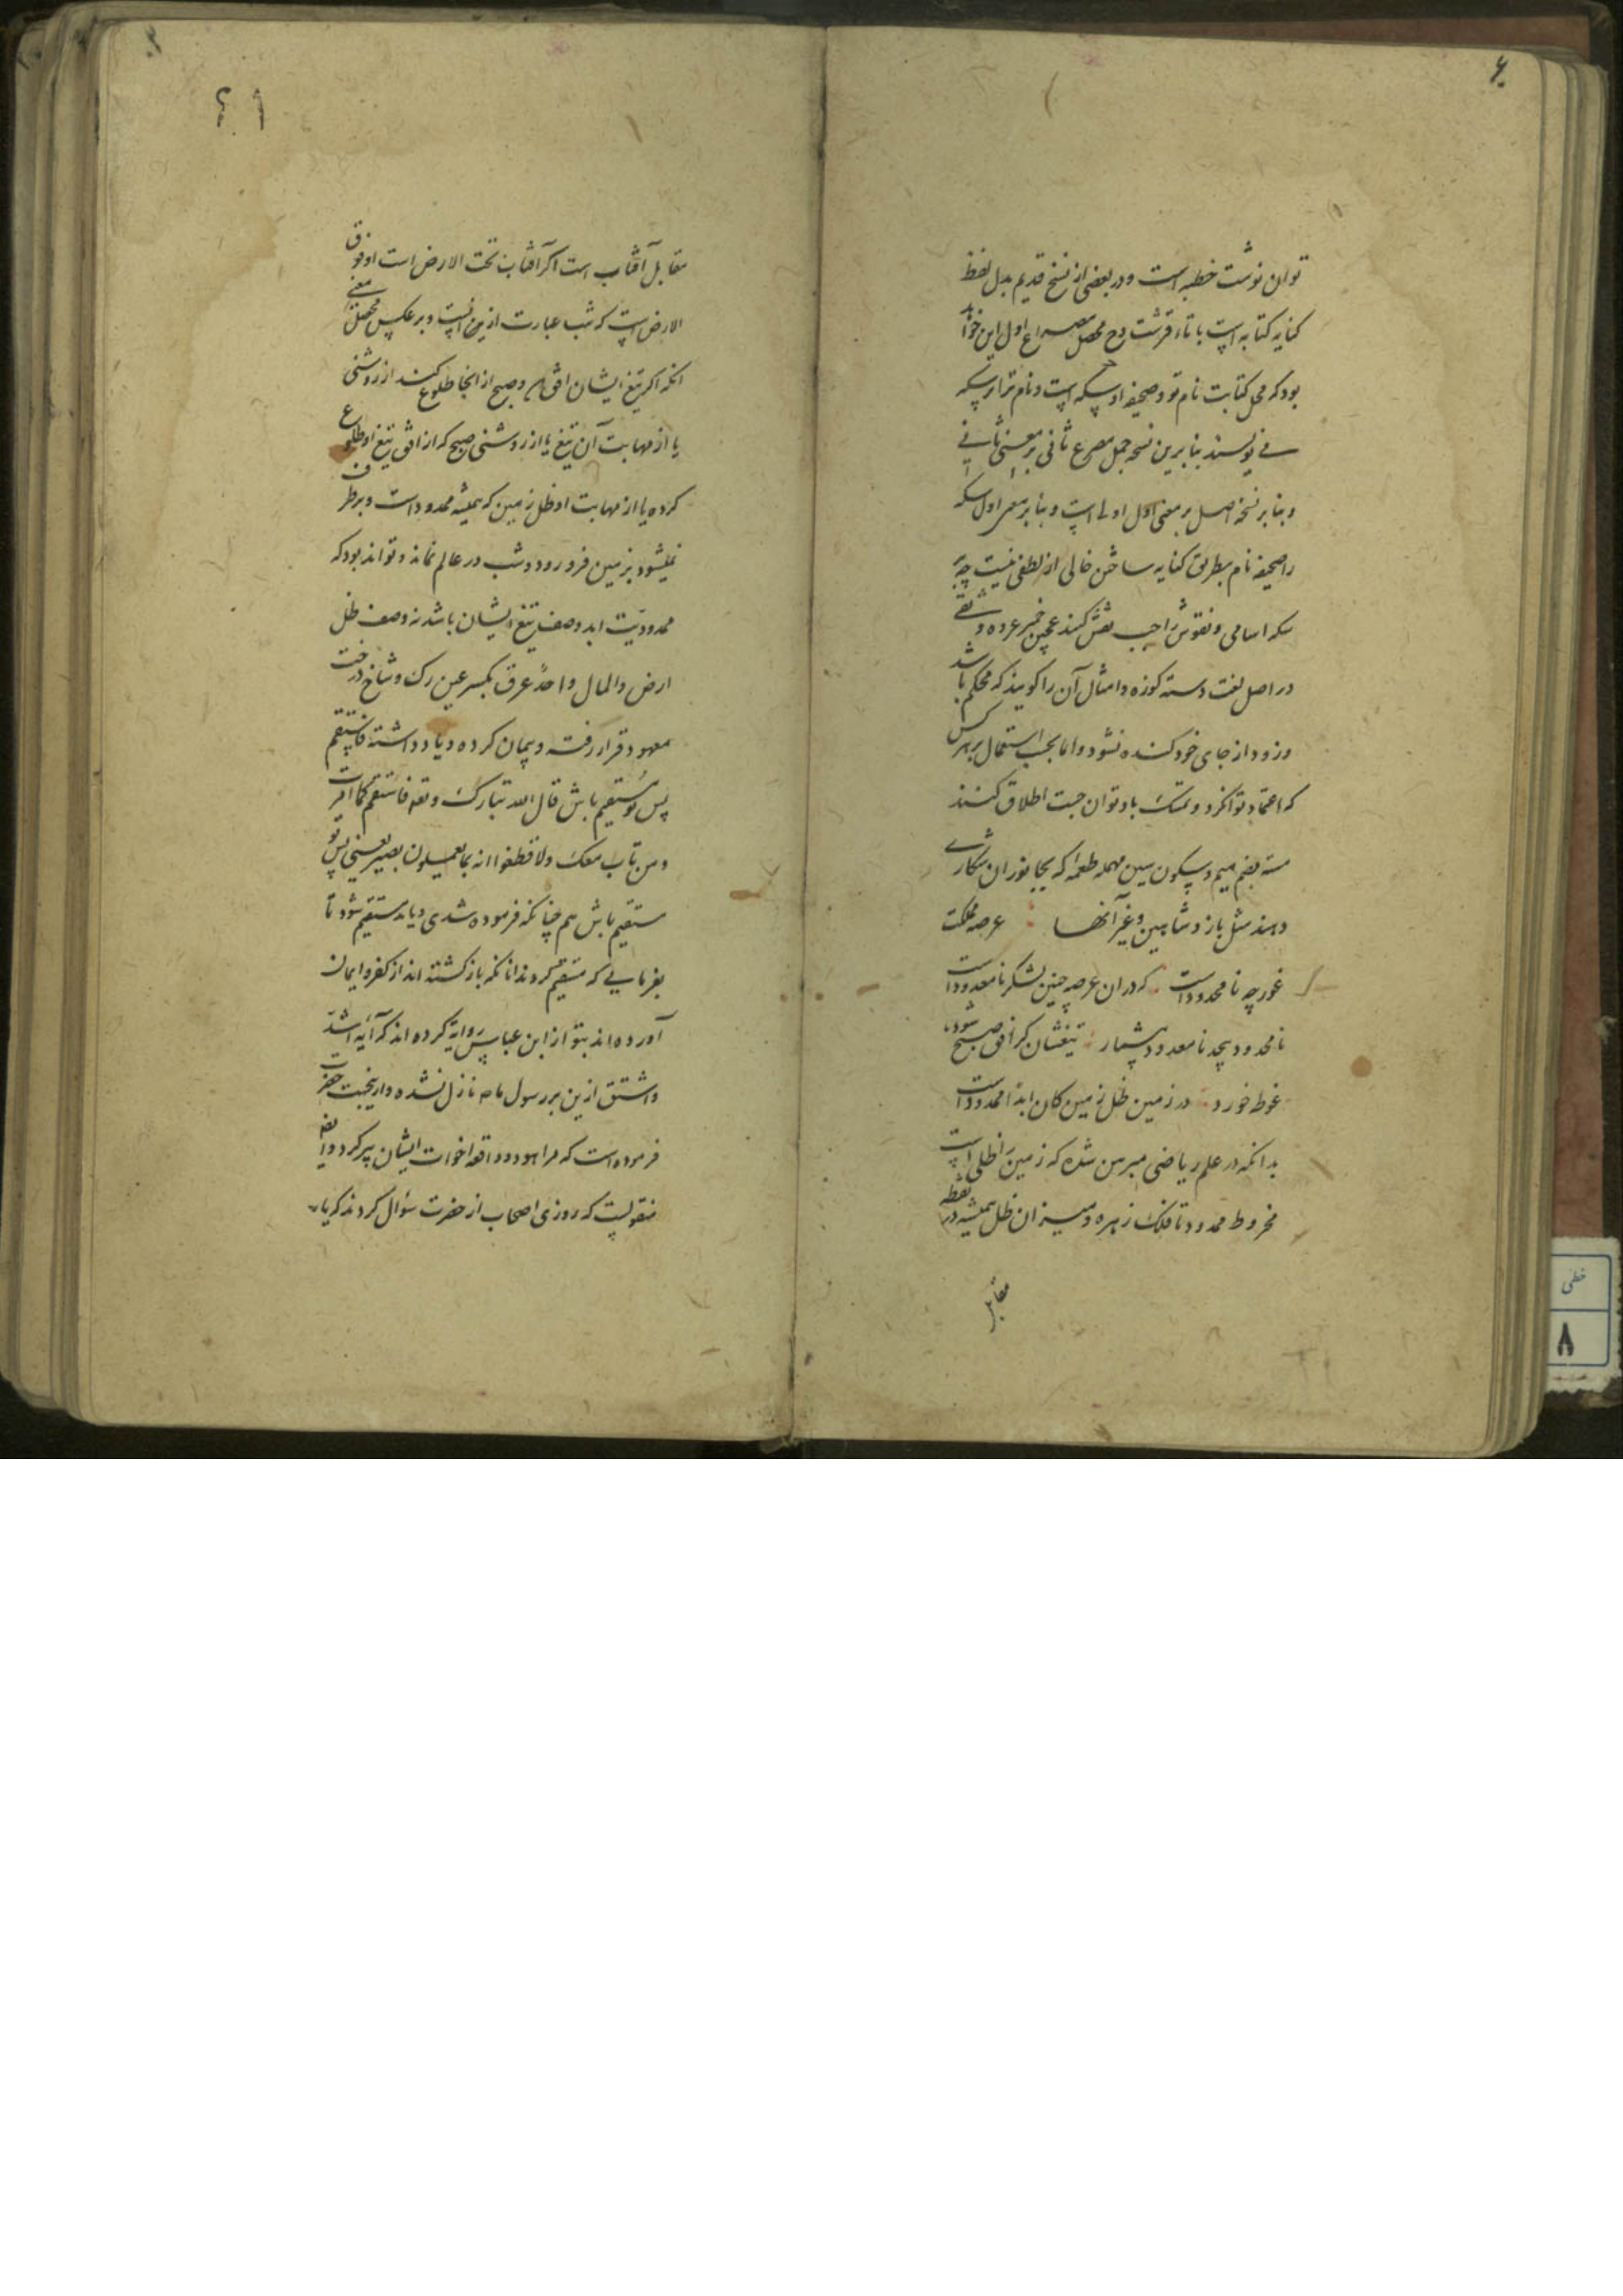 ۶
توان نوشت خطبه است و در بعضی از نسخ قدیم بدل لفظ
کنایه کتابه است با تاء قرشت وح محصل مصراع اول این خواند
بود که محل کتابت نام تو و صحیفه او سکه است و نام ترا بر سکه
می نویسند بنا برین نسخه حمل مصرع ثانی بر معنی ثانی
و بنا بر نسخه اصل بر معنی اول اولی است و بنا بر معنی اول سکه
را صحیفه نام بطریق کنایه ساختن خالی از لطفی نیست چه بر
سکه اسامی و نقوش را نقش کنند عروه و ثقی
در اصل لغت دسته کوزه و امثال آن را کویند که محکم باشد
و زود از جای خود کنده نشود و اما بحسب استعمال بر هر کس
که اعتماد توان کرد و تمسک باو توان جست اطلاق کنند
مسته بضم میم و سکون سین مهمله طعمه که بجانوران شکاری
دهند مثل باز و شاهین و غیر آنها عرصه مملکت
غور چه نامحدود است که در ان عرصه چنین لشکر نامعدود است
نامحدود بیحد نامعدود بیشمار تیغشان کر افق صبح شود
غوطه خورد در زمین ظل زمین کان ابدا ممدود است
بدانکه در علم ریاضی مبرهن شده که زمین را ظلی است
مخروط ممدود تا فلک زهره و میزان ظل همیشه در نقطه
مقابل
خطی
۸
مقابل آفتاب است اکر آفتاب تحت الارض است او فوق
الارض است که شب عبارت ازین است و بر عکس محصل معنی
انکه اکر تیغ ایشان افق و صبح از انجا طلوع کند از روشنی
یا از مهابت آن تیغ یا از روشنی صبح که از افق تیغ او طلوع
کرده یا از مهابت او ظل زمین که همیشه ممدود است و برطرف
نمیشود بزمین فرو رود و شب در عالم نماند و تواند بود که
ممدودیت ابد وصف تیغ ایشان باشد نه وصف ظل
ارض والمال واحد عرق بکسر عین رک و شاخ درخت
معهود قرار رفته و پیمان کرده و یاد داشته فاستقم
پس تو مستقیم باش قال الله تبارک و تعه فاستقم کما امرت
و من تاب معک ولا تطغوا انه بما تعملون بصیر یعنی پس تو
مستقیم باش هم چنانکه فرموده شدی و باید مستقیم شود تا
بفرمایی که مستقیم کردند انانکه باز کشته اند از کفر و ایمان
آورده اند بتو از ابن عباس روایة کرده اند که آیه اشد
و اشق ازین بر رسول ما نازل نشده و ازینجهت حضرت
فرموده است که مرا هود و واقعه اخوات ایشان پیر کرد و ایضا
منقولست که روزی اصحاب از حضرت سؤال کردند که یا